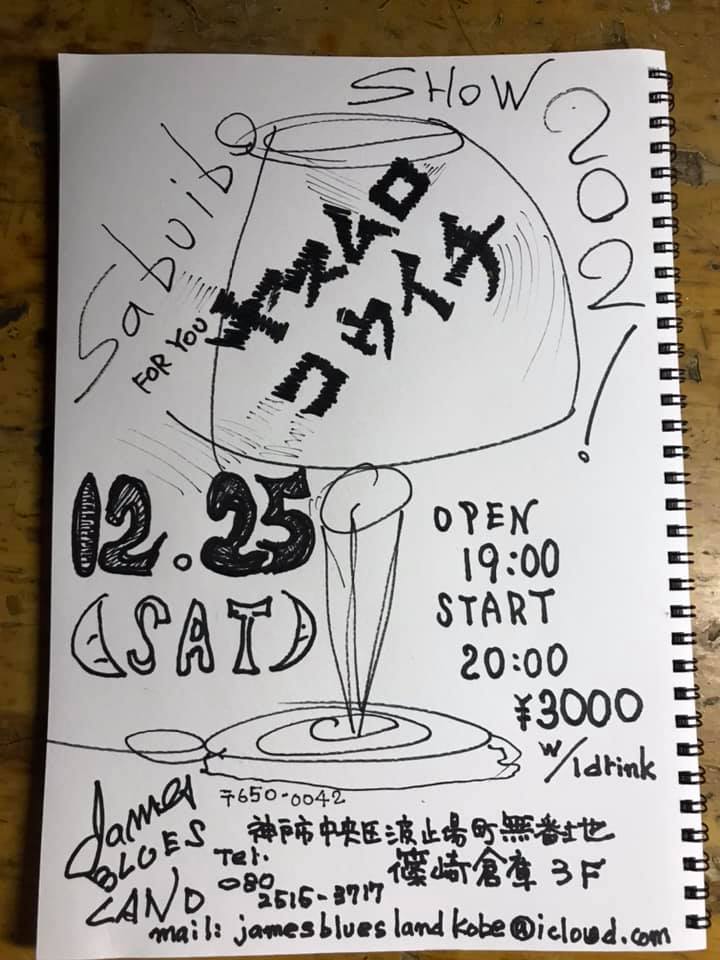 Sabuibo
SHOW
202!
FOR YOU
ヤスムロ
コウイチ
12.25
(SAT)
OPEN
19:00
START
20:00
¥3000
w/1drink
James
BLUES
LAND
〒650-0042
神戸市中央区波止場町無番地
篠崎倉庫 3F
Tel.
080
2515-3717
mail: jamesblueslandkobe@icloud.com